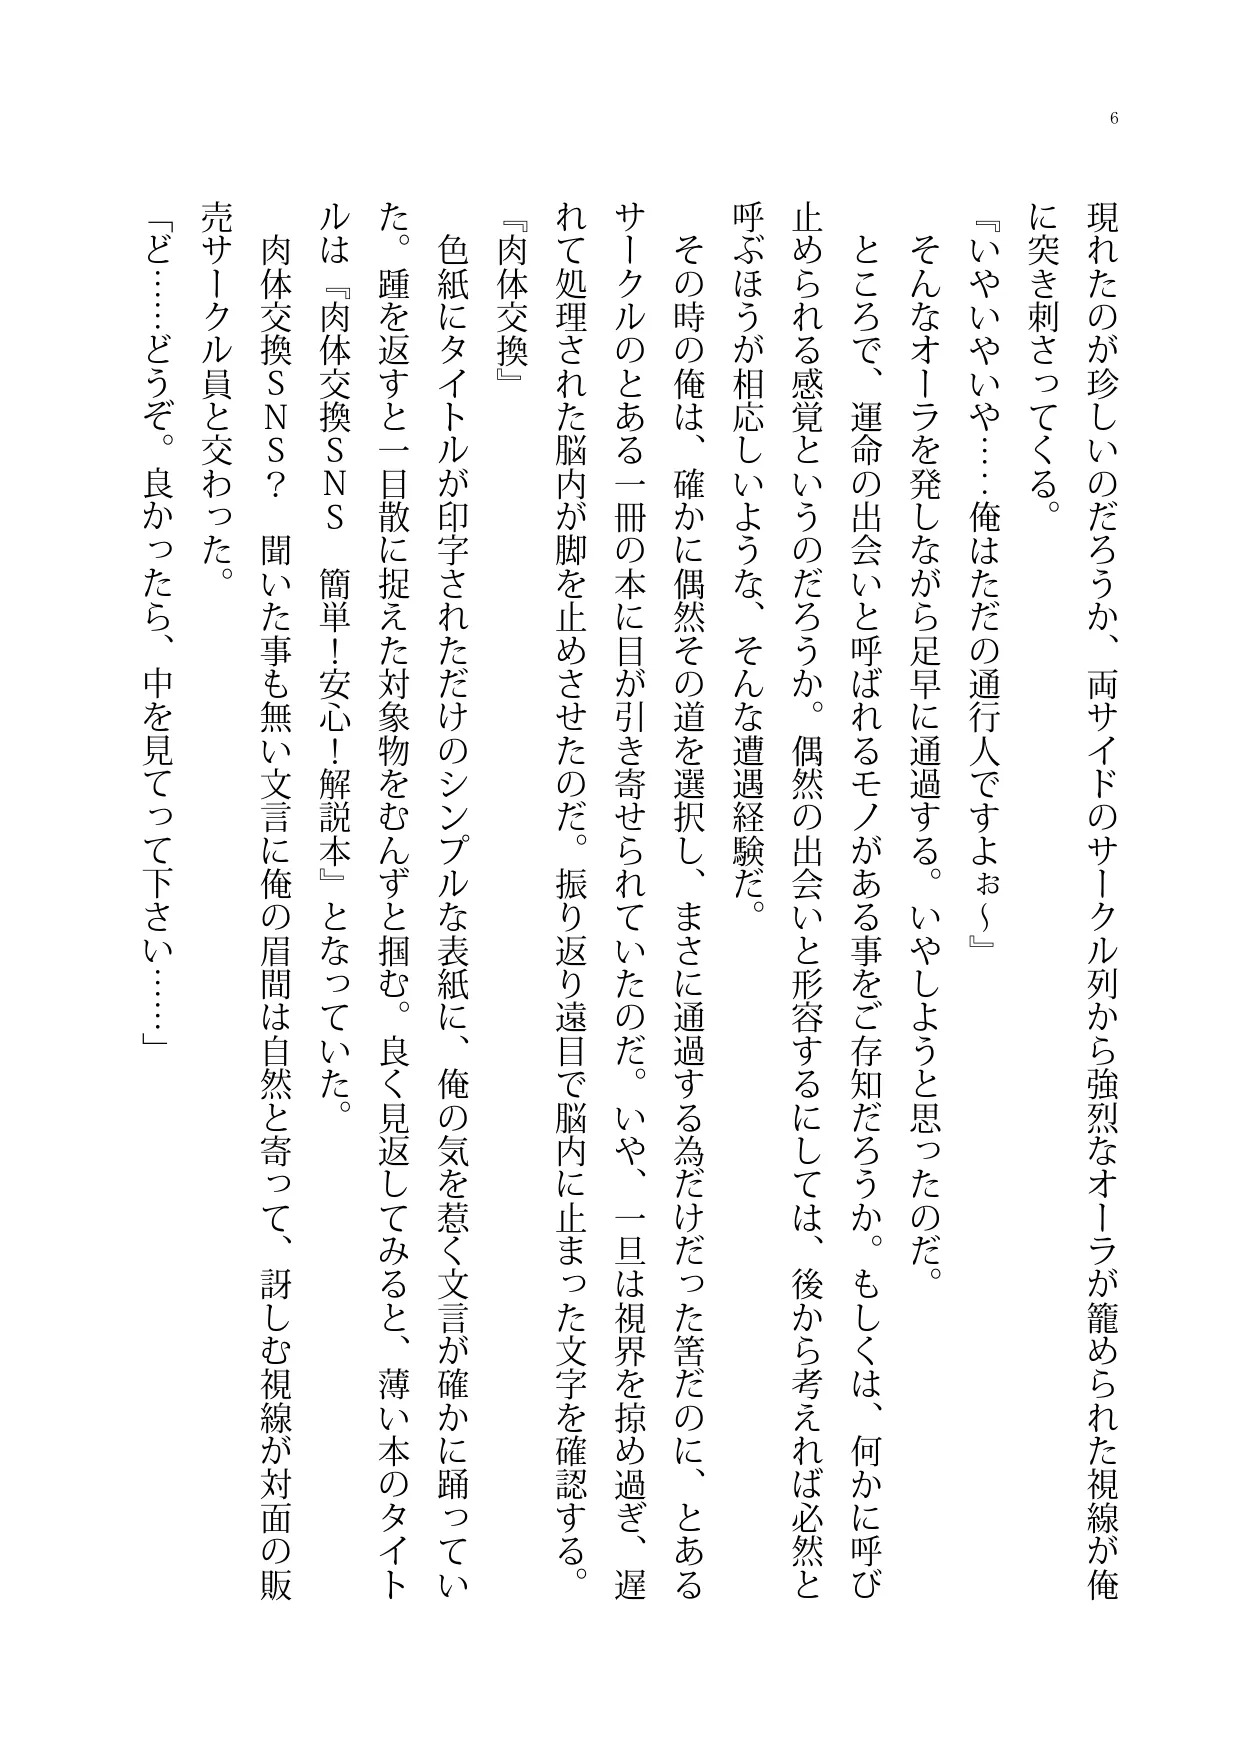 6
現れたのが珍しいのだろうか、両サイドのサークル列から強烈なオーラが籠められた視線が俺
に突き刺さってくる。
『いやいやいや……俺はただの通行人ですよぉ～』
　そんなオーラを発しながら足早に通過する。いやしようと思ったのだ。
　ところで、運命の出会いと呼ばれるモノがある事をご存知だろうか。もしくは、何かに呼び
止められる感覚というのだろうか。偶然の出会いと形容するにしては、後から考えれば必然と
呼ぶほうが相応しいような、そんな遭遇経験だ。
　その時の俺は、確かに偶然その道を選択し、まさに通過する為だけだった筈だのに、とある
サークルのとある一冊の本に目が引き寄せられていたのだ。いや、一旦は視界を掠め過ぎ、遅
れて処理された脳内が脚を止めさせたのだ。振り返り遠目で脳内に止まった文字を確認する。
『肉体交換』
　色紙にタイトルが印字されただけのシンプルな表紙に、俺の気を惹く文言が確かに踊ってい
た。踵を返すと一目散に捉えた対象物をむんずと掴む。良く見返してみると、薄い本のタイト
ルは『肉体交換ＳＮＳ　簡単！安心！解説本』となっていた。
　肉体交換ＳＮＳ？　聞いた事も無い文言に俺の眉間は自然と寄って、訝しむ視線が対面の販
売サークル員と交わった。
「ど……どうぞ。良かったら、中を見てって下さい……」